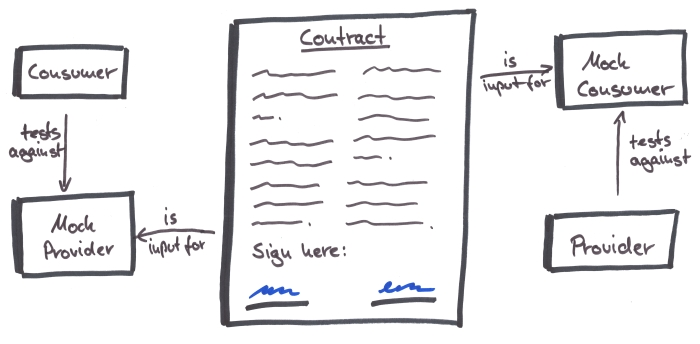 Contract
Consumer
tests
against
Mock
Provider
is
input for
Sign here:
is
input for
Mock
Consumer
tests
against
Provider